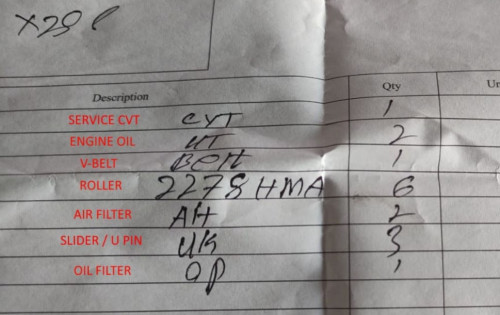 Description Qty Un
SERVICE CVT CVT 1
ENGINE OIL UT 2
V-BELT Belt 1
ROLLER 2278 HMA 6
AIR FILTER AH 2
SLIDER / U PIN UK 3
OIL FILTER OP 1